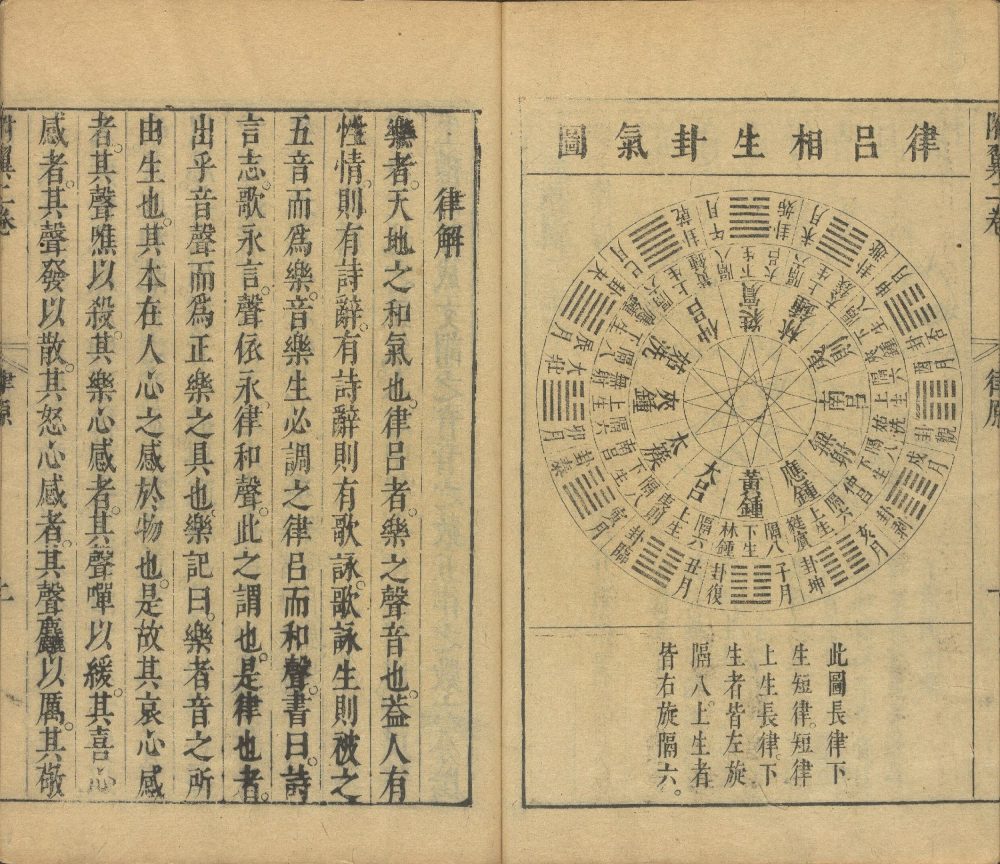 律呂相生卦氣圖
黃鍾
大呂
太簇
夾鍾
姑洗
仲呂
蕤賓
林鍾
夷則
南呂
無射
應鍾
隔八下生林鍾
子月
卦復
丑月
卦臨
寅月
卦泰
卯月
卦壯
辰月
卦夬
巳月
卦乾
午月
卦姤
未月
卦遯
申月
卦否
酉月
卦觀
戌月
卦剝
亥月
卦坤
此圖長律下
生短律。短律
上生長律。下
生者皆左旋
隔八。上生者
皆右旋隔六。
律解
樂者。天地之和氣也。律呂者。樂之聲音也。葢人有
性情。則有詩辭。有詩辭則有歌詠。歌詠生則被之
五音而爲樂。音樂生必調之律呂而和聲。書曰。詩
言志。歌永言。聲依永。律和聲。此之謂也。是律也者。
出乎音聲而爲正樂之具也。樂記曰。樂者音之所
由生也。其本在人心之感於物也。是故其哀心感
者。其聲噍以殺。其樂心感者。其聲嘽以緩。其喜心
感者。其聲發以散。其怒心感者。其聲麤以厲。其敬